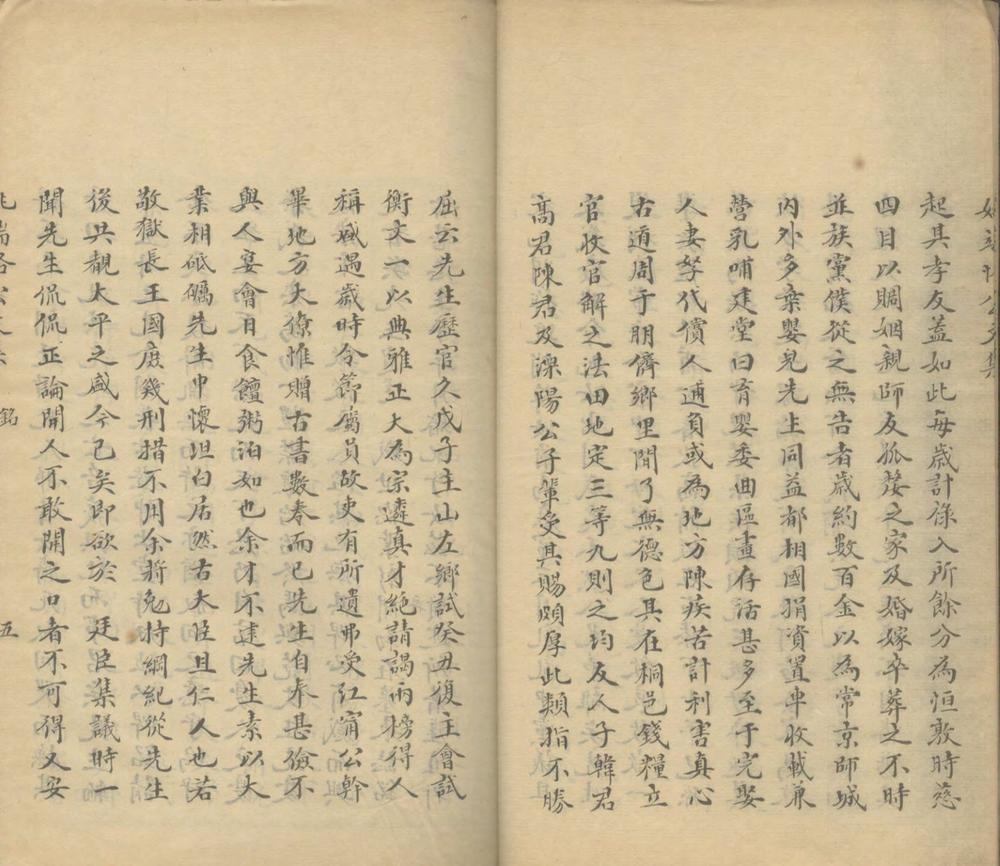 起其孝友蓋如此每歲計祿入所餘分為恒數時慈
四目以賙姻親師友孤嫠之家及婚嫁卒葬之不時
並族黨僕從之無告者歲約數百金以為常京師城
內外多棄嬰兒先生同益都相國捐資置車收載兼
營乳哺建堂曰育嬰委曲區畫存活甚多至于完娶
人妻孥代償人逋負或為地方陳疾苦計利害真心
古道周于朋儕鄉里間了無德色其在桐邑錢糧立
官收官解之法田地定三等九則之均友人子韓君
高君陳君及溧陽公子輩受其賜頗厚此類指不勝
屈云先生歷官久戊子主山左鄉試癸丑復主會試
衡文一以典雅正大為宗遴真才絕請謁兩榜得人
稱盛遇歲時令節屬員故吏有所遺弗受江甯公幹
畢地方大僚惟贈古書數卷而已先生自奉甚儉不
與人宴會日食饘粥泊如也余才不逮先生素以大
業相砥礪先生中懷坦白居然古大臣且仁人也若
敬獄長王國庶幾刑措不用余將勉持綱紀從先生
後共覩太平之盛今已矣即欲於 廷臣集議時一
聞先生侃侃正論開人不敢開之口者不可得又安
銘 五